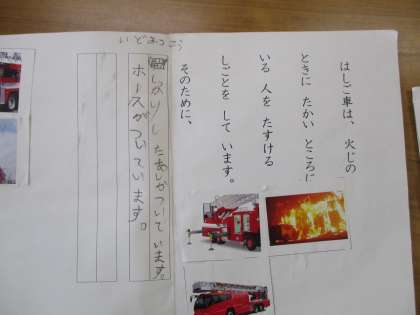 はしご車は、火じの
ときに たかい ところに
いる 人を たすける
しごとを して います。
そのために、
しっかりした あしがついて います。
ホースがついています。